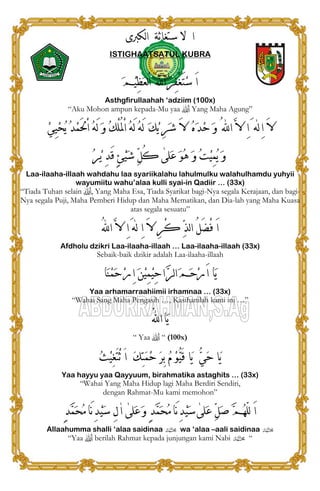 ا لا ستغاثة الكبرى
ISTIGHAATSATUL KUBRA
اَسْتَغْفِرُاللهَ الْعَظِيْمَ
Asthgfirullaahah ‘adziim (100x)
“Aku Mohon ampun kepada-Mu yaa ﷲ Yang Maha Agung”
لاَ اِلٰهَ اِلاَّ اللهُ وَحْدَهُ لاَ شَرِيْكَ لَهُ لَهُ الْمُلْكُ وَلَهُ الْحَمْدُ يُحْيِيْ
وَيُمِيْتُ وَهُوَ عَلَى كُلِّ شَيْئٍ قَدِيْرُ
Laa-ilaaha-illaah wahdahu laa syariikalahu lahulmulku walahulhamdu yuhyii
wayumiitu wahu’alaa kulli syai-in Qadiir … (33x)
“Tiada Tuhan selain ﷲ, Yang Maha Esa, Tiada Syarikat bagi-Nya segala Kerajaan, dan bagi-
Nya segala Puji, Maha Pemberi Hidup dan Maha Mematikan, dan Dia-lah yang Maha Kuasa
atas segala sesuatu”
اَفْضَلُ الذِّ كْرِ لاَ اِلَهَ اِلاَّ اللهُ
Afdholu dzikri Laa-ilaaha-illaah … Laa-ilaaha-illaah (33x)
Sebaik-baik dzikir adalah Laa-ilaaha-illaah
يَا اَرْحَمَ الرَّاحِمِيْنَ اِرْحَمْنَا
Yaa arhamarraahiimii irhamnaa … (33x)
“Wahai Sang Maha Pengasih …, Kasihanilah kami ini …”
ABDURRAHMAN,S.Ag
يَا اَللهُ
“ Yaa ﷲ “ (100x)
يَا حَيُّ يَا قَيُّوْمُ بِرَ حْمَتِكَ اَ سْتَغِيْثُ
Yaa hayyu yaa Qayyuum, birahmatika astaghits … (33x)
“Wahai Yang Maha Hidup lagi Maha Berdiri Sendiri,
dengan Rahmat-Mu kami memohon”
اَ للّٰهُمَّ صَلِّ عَلَى سَيِّدِ نَا مُحَمَّدٍ وَعَلَى اَلِ سَيِّدِ نَا مُحَمَّدٍ
Allaahumma shalli ‘alaa saidinaa ﷺ wa ‘alaa –aali saidinaa ﷺ
“Yaa ﷲ berilah Rahmat kepada junjungan kami Nabi ﷺ “